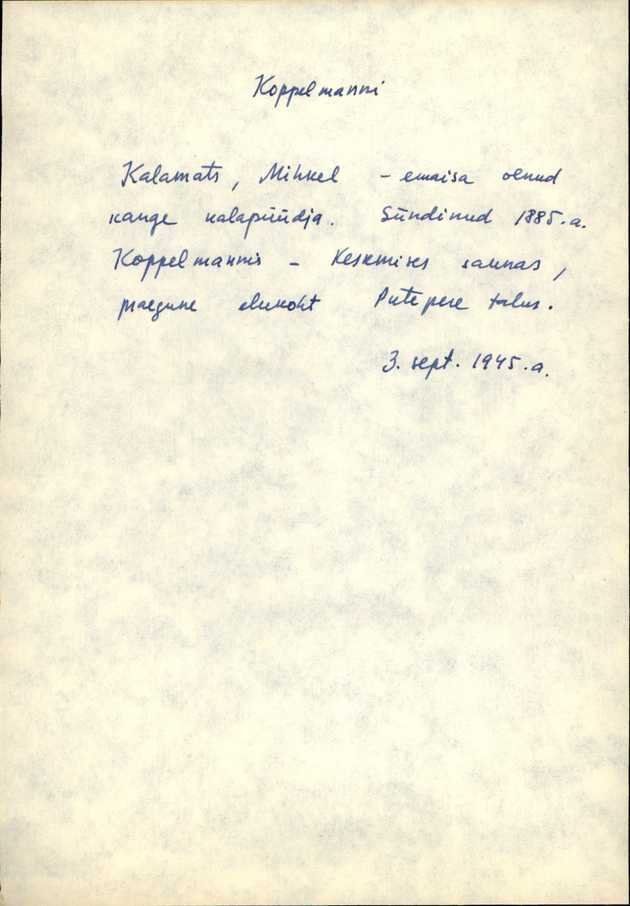 Koppelmanni
Kalamats, Mihkel - emaisa olnud
kange kalapüüdja. Sündinud 1885.a.
Koppelmannis - Keskmises saunas,
praegune elukoht Putepere talus.
3. sept. 1945.a.